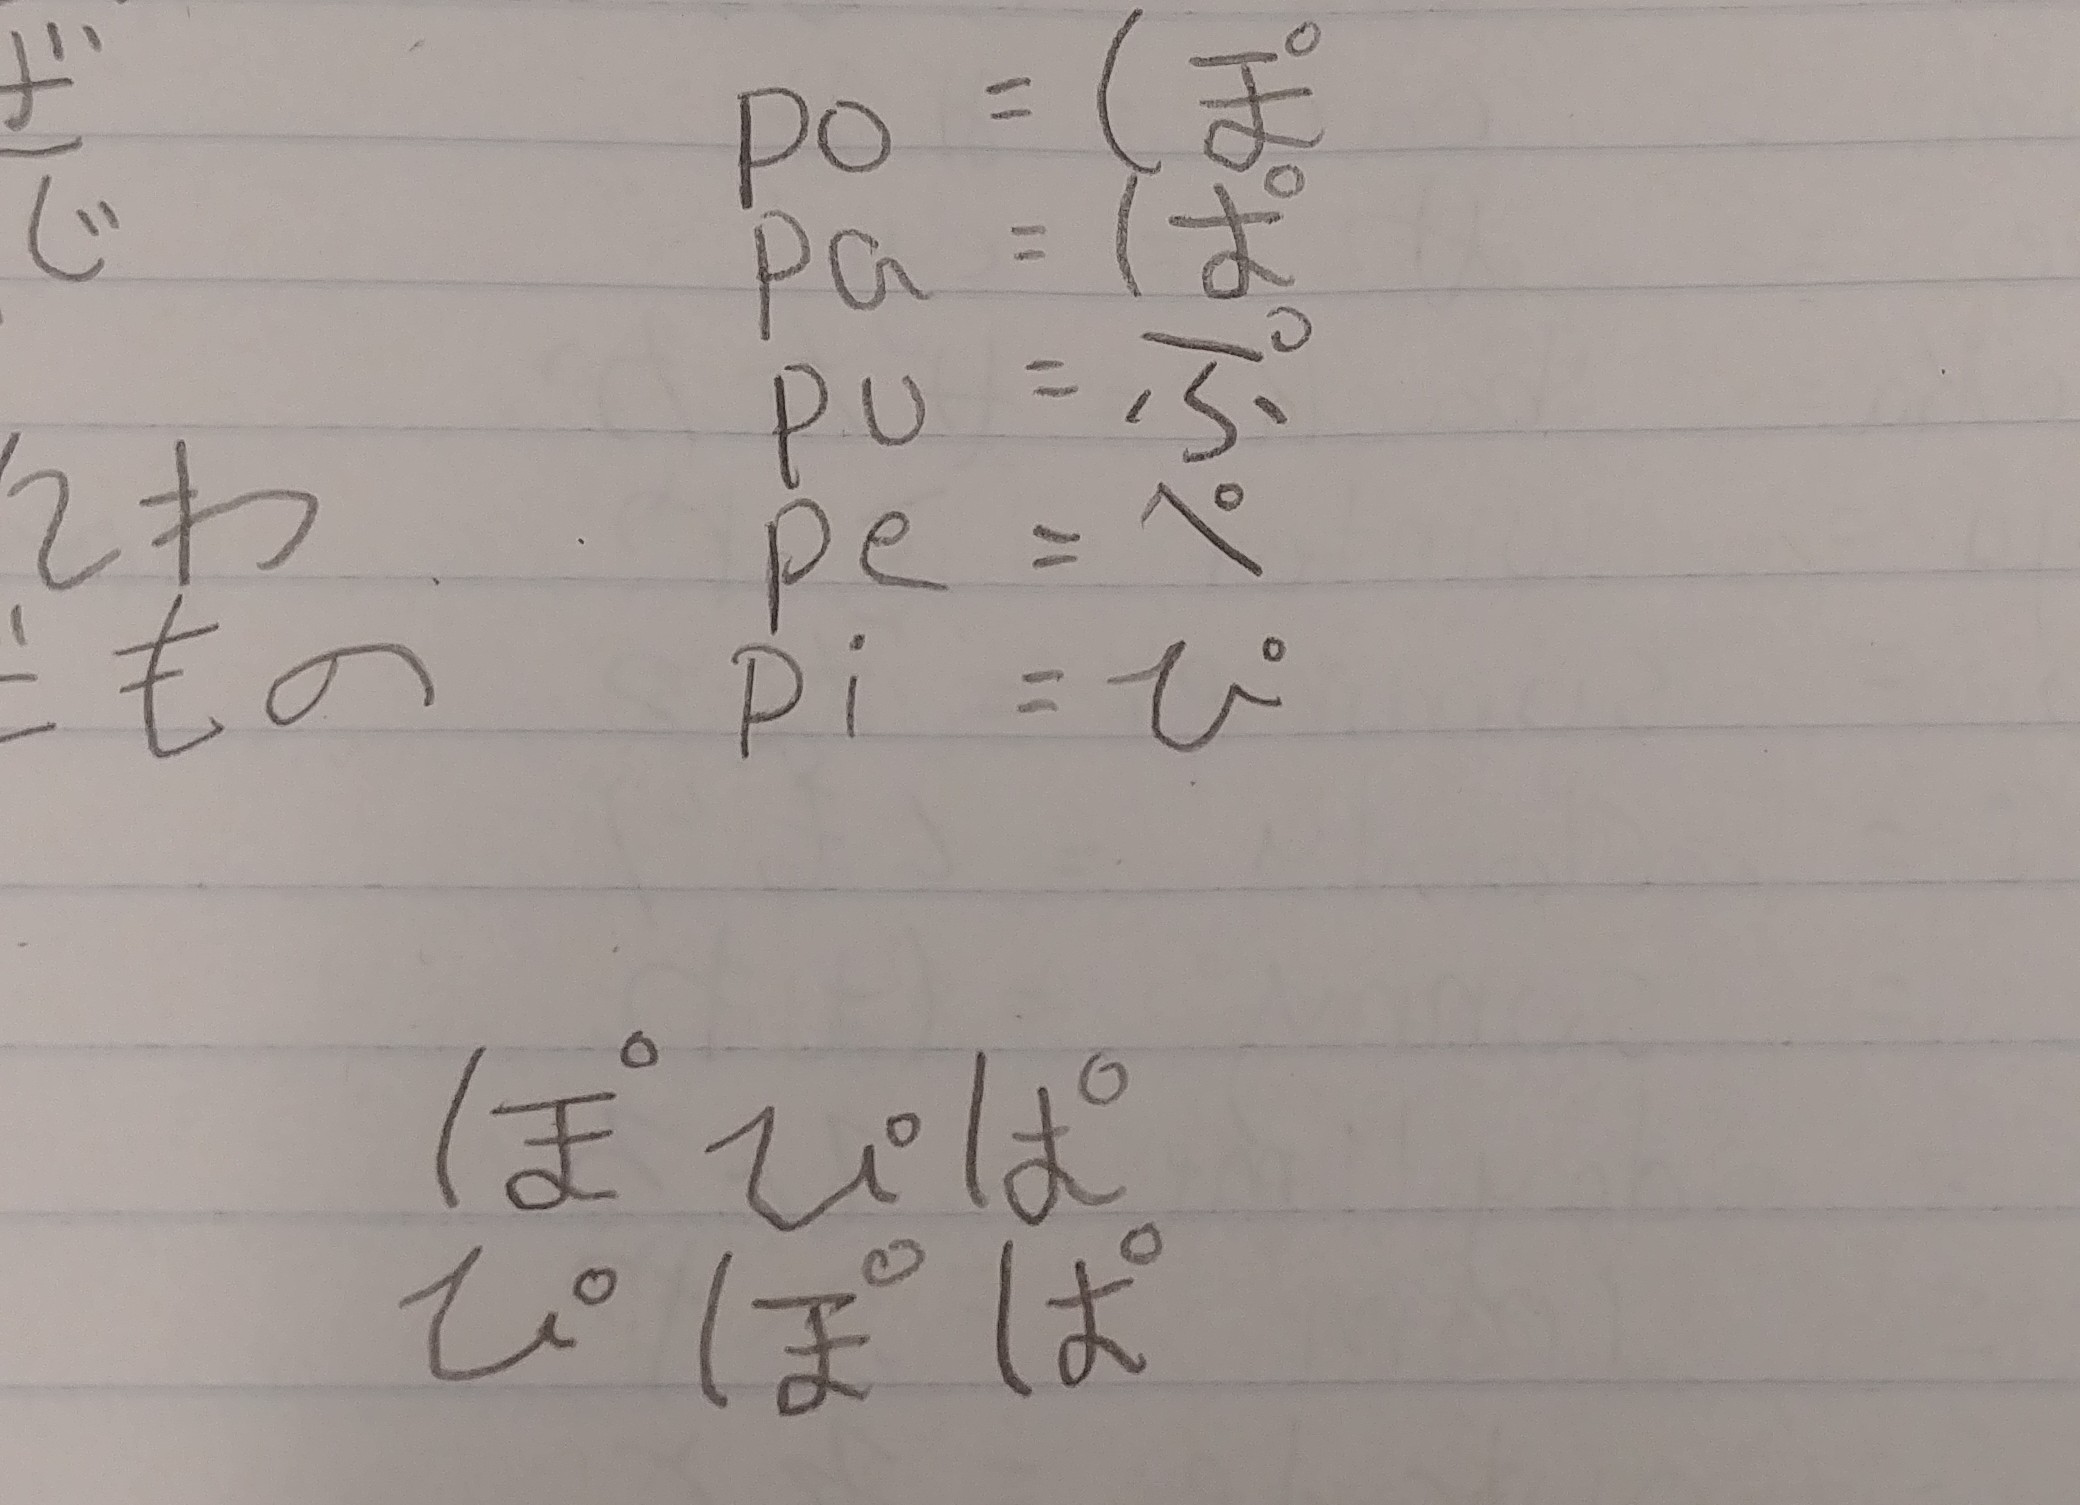 ざ
じ
po = ぽ
pa = ぱ
pu = ぷ
pe = ぺ
pi = ぴ
もの
ぽぴぱ
ぴぽぱ